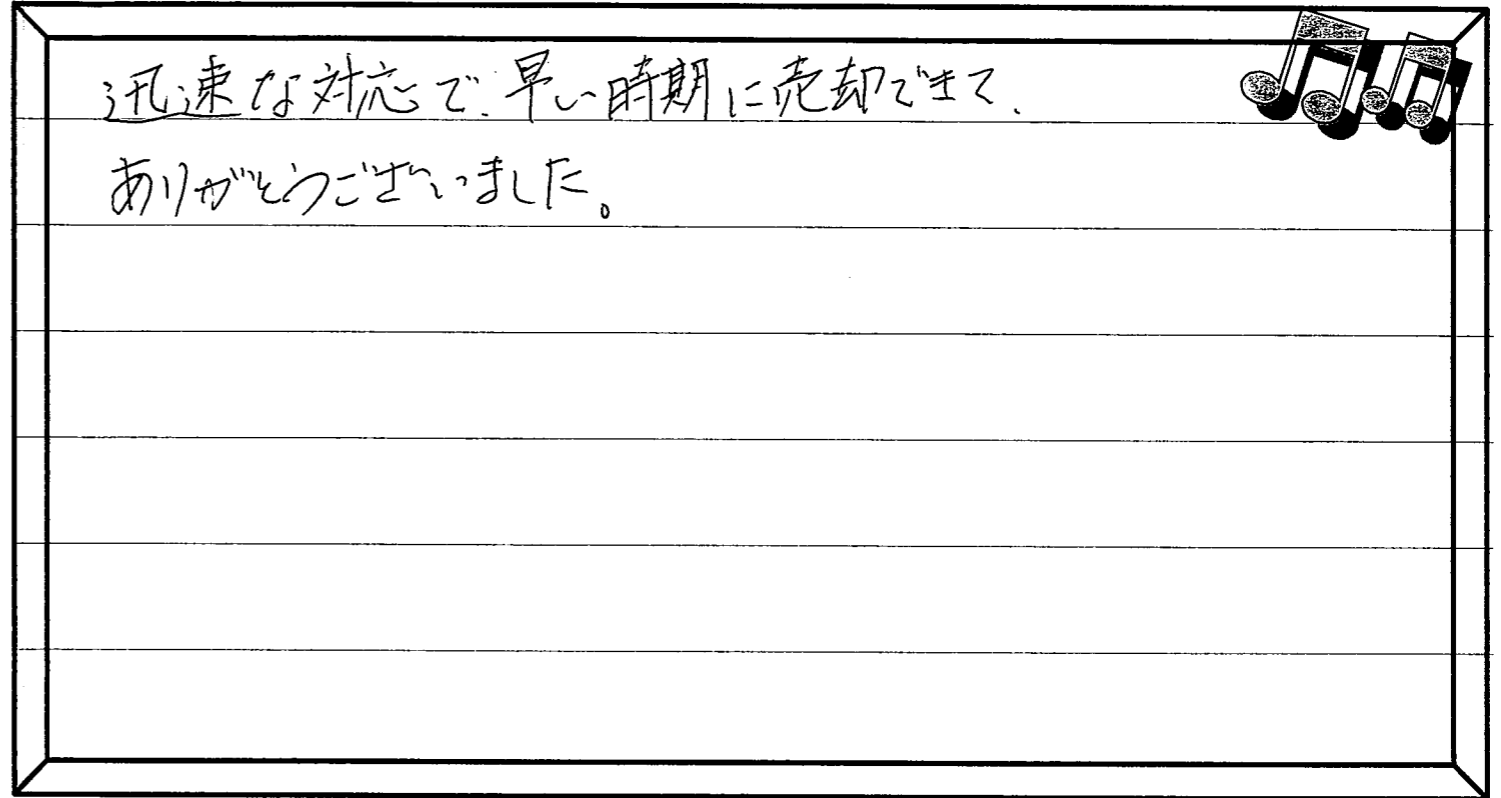 迅速な対応で、早い時期に売却できて、
ありがとうございました。